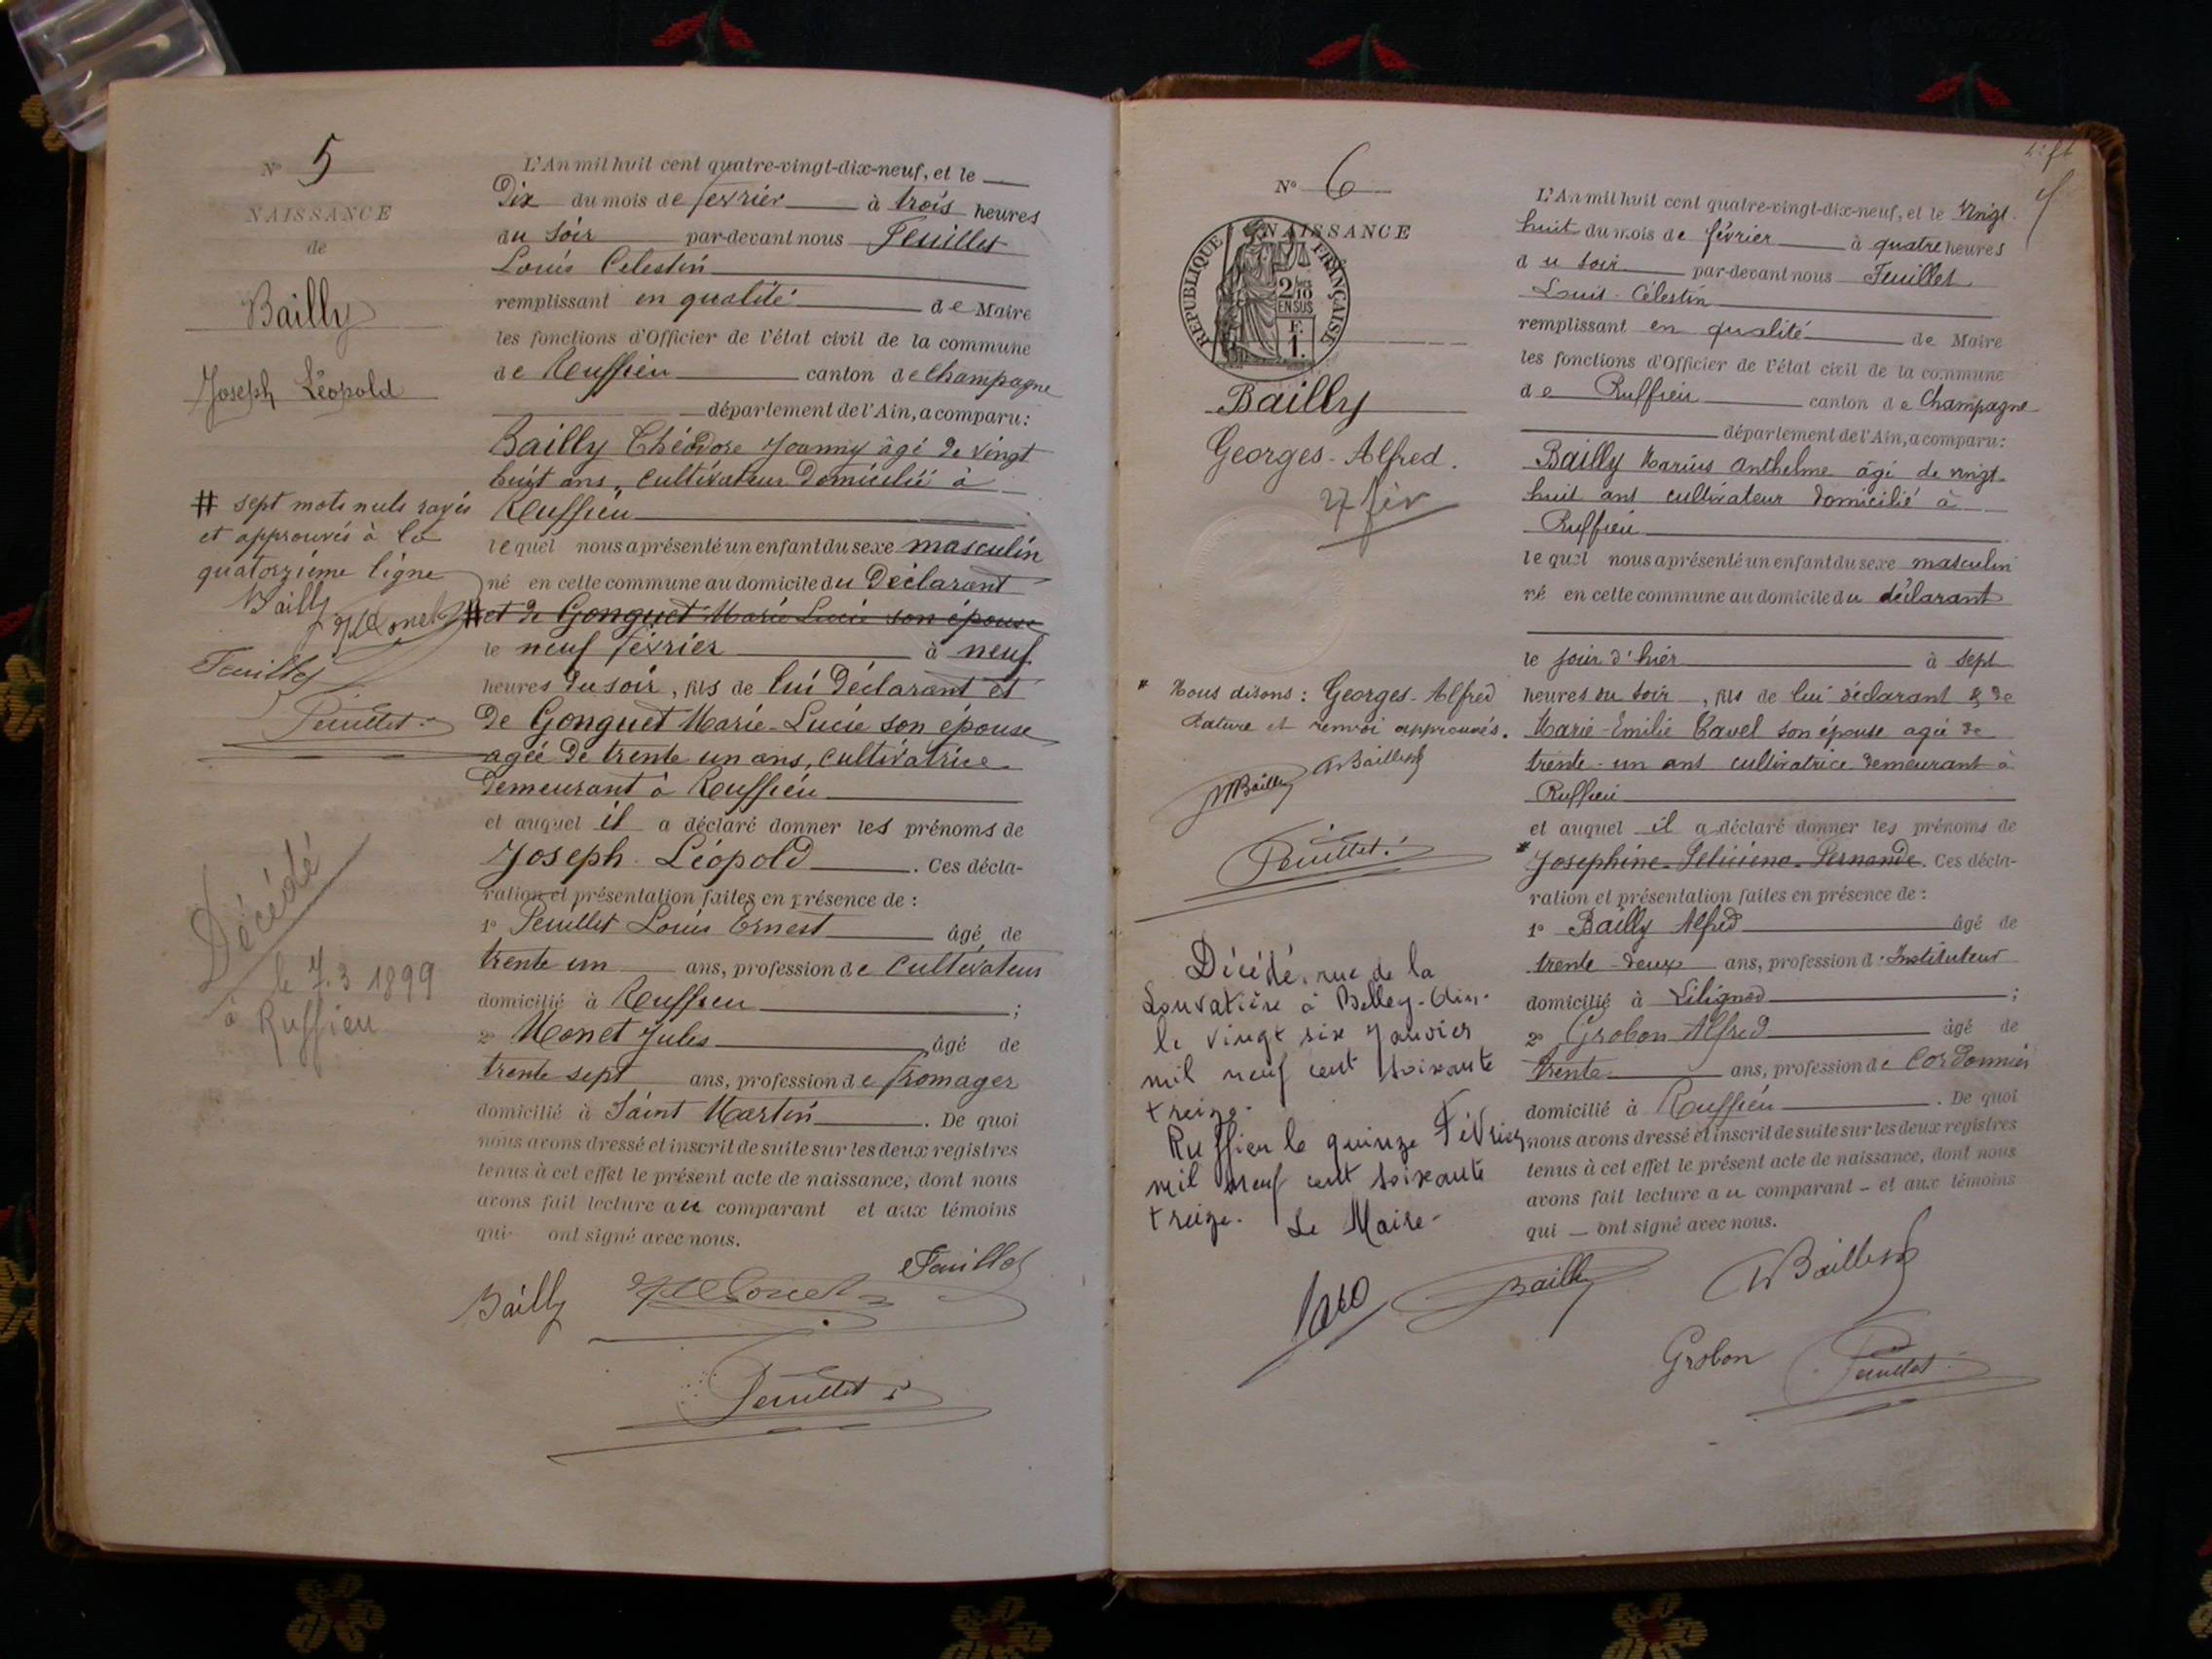 N° 5
NAISSANCE
de
Bailly
Joseph Léopold
# sept mots nuls rayés
et approuvés à la
quatorzième ligne
Bailly
J Monet
Feuillet
Feuillet
Décédé
le 7.3 1899
à Ruffieu
L'An mil huit cent quatre-vingt-dix-neuf, et le
Dix du mois de février à trois heures
du Soir par-devant nous Feuillet
Louis Célestin
remplissant en qualité de Maire
les fonctions d'Officier de l'état civil de la commune
de Ruffieu canton de Champagne
département de l'Ain, a comparu:
Bailly Théodore Joanny âgé de vingt
huit ans, cultivateur domicilié à
Ruffieu
lequel nous a présenté un enfant du sexe masculin
né en cette commune au domicile du Déclarant
# et de Gonguet Marie Lucie son épouse
le neuf février à neuf
heures du soir, fils de lui Déclarant et
de Gonguet Marie-Lucie son épouse
agée de trente un ans, cultivatrice
demeurant à Ruffieu
et auquel il a déclaré donner les prénoms de
Joseph Léopold. Ces décla-
ration et présentation faites en présence de :
1° Feuillet Louis Ernest âgé de
trente un ans, profession de cultivateur
domicilié à Ruffieu ;
2° Monet Jules âgé de
trente sept ans, profession de fromager
domicilié à Saint Martin. De quoi
nous avons dressé et inscrit de suite sur les deux registres
tenus à cet effet le présent acte de naissance, dont nous
avons fait lecture au comparant et aux témoins
qui ont signé avec nous.
Bailly J Monet Feuillet
Feuillet
N° 6
NAISSANCE
RÉPUBLIQUE FRANÇAISE
2/10
EN SUS
F.
1.
Bailly
Georges-Alfred.
27 fév
* Nous disons : Georges-Alfred
Rature et renvoi approuvés.
MBailly ABailly
Feuillet
Décédé, rue de la
Louvatière à Belley-Ain-
le vingt six Janvier
mil neuf cent soixante
treize.
Ruffieu le quinze Février
mil neuf cent soixante
treize. Le Maire-
L'An mil huit cent quatre-vingt-dix-neuf, et le Vingt
huit du mois de février à quatre heures
du soir par-devant nous Feuillet
Louis-Célestin
remplissant en qualité de Maire
les fonctions d'Officier de l'état civil de la commune
de Ruffieu canton de Champagne
département de l'Ain, a comparu:
Bailly Marius Anthelme âgé de vingt
huit ans cultivateur domicilié à
Ruffieu
lequel nous a présenté un enfant du sexe masculin
né en cette commune au domicile du déclarant
le jour d'hier à sept
heures du soir, fils de lui déclarant & de
Marie-Emilie Ravel son épouse agée de
trente-un ans cultivatrice demeurant à
Ruffieu
et auquel il a déclaré donner les prénoms de
* Josephine-Féliciene-Fernande. Ces décla-
ration et présentation faites en présence de :
1° Bailly Alfred âgé de
trente-deux ans, profession d'Instituteur
domicilié à Lilignod ;
2° Grobon Alfred âgé de
trente ans, profession de Cordonnier
domicilié à Ruffieu. De quoi
nous avons dressé et inscrit de suite sur les deux registres
tenus à cet effet le présent acte de naissance, dont nous
avons fait lecture au comparant - et aux témoins
qui - ont signé avec nous.
Bailly ABailly
Grobon Feuillet